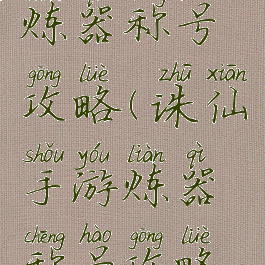 炼器称号
gōng lüè zhū xiān
攻略(诛仙
shǒu yóu liàn qì
手游炼器
chēng hào gōng lüè
称号攻略